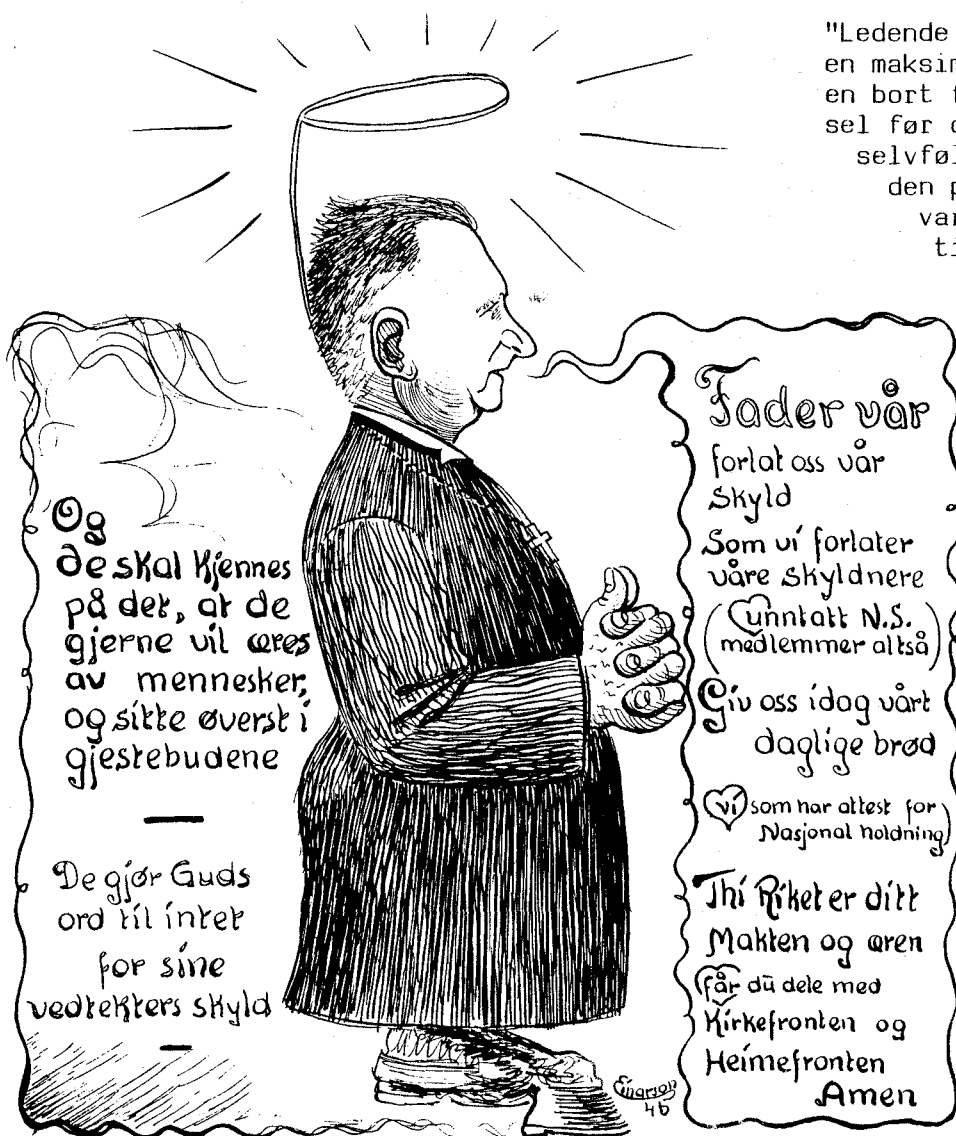 "Ledende
en maksi
en bort
sel før
selvføl
den
var
ti
Og
de skal kjennes
på det, at de
gjerne vil æres
av mennesker,
og sitte øverst i
gjestebudene
De gjør Guds
ord til intet
for sine
vedtekters skyld
Fader vår
forlat oss vår
Skyld
Som vi forlater
våre skyldnere
(unntatt N.S.
medlemmer altså)
Giv oss idag vårt
daglige brød
(vi som har attest for
Nasjonal holdning)
Thi Riket er ditt
Makten og æren
får du dele med
Kirkefronten og
Heimefronten
Amen
Einarson
46